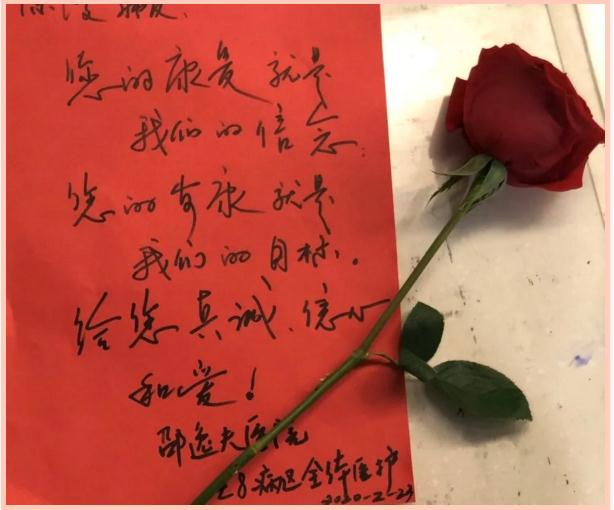 您的康复就是
我们的信念.
您的安康就是
我们的目标.
给您真诚、信心
和爱!
邵逸夫医院
28病区全体医护
2020-2-23